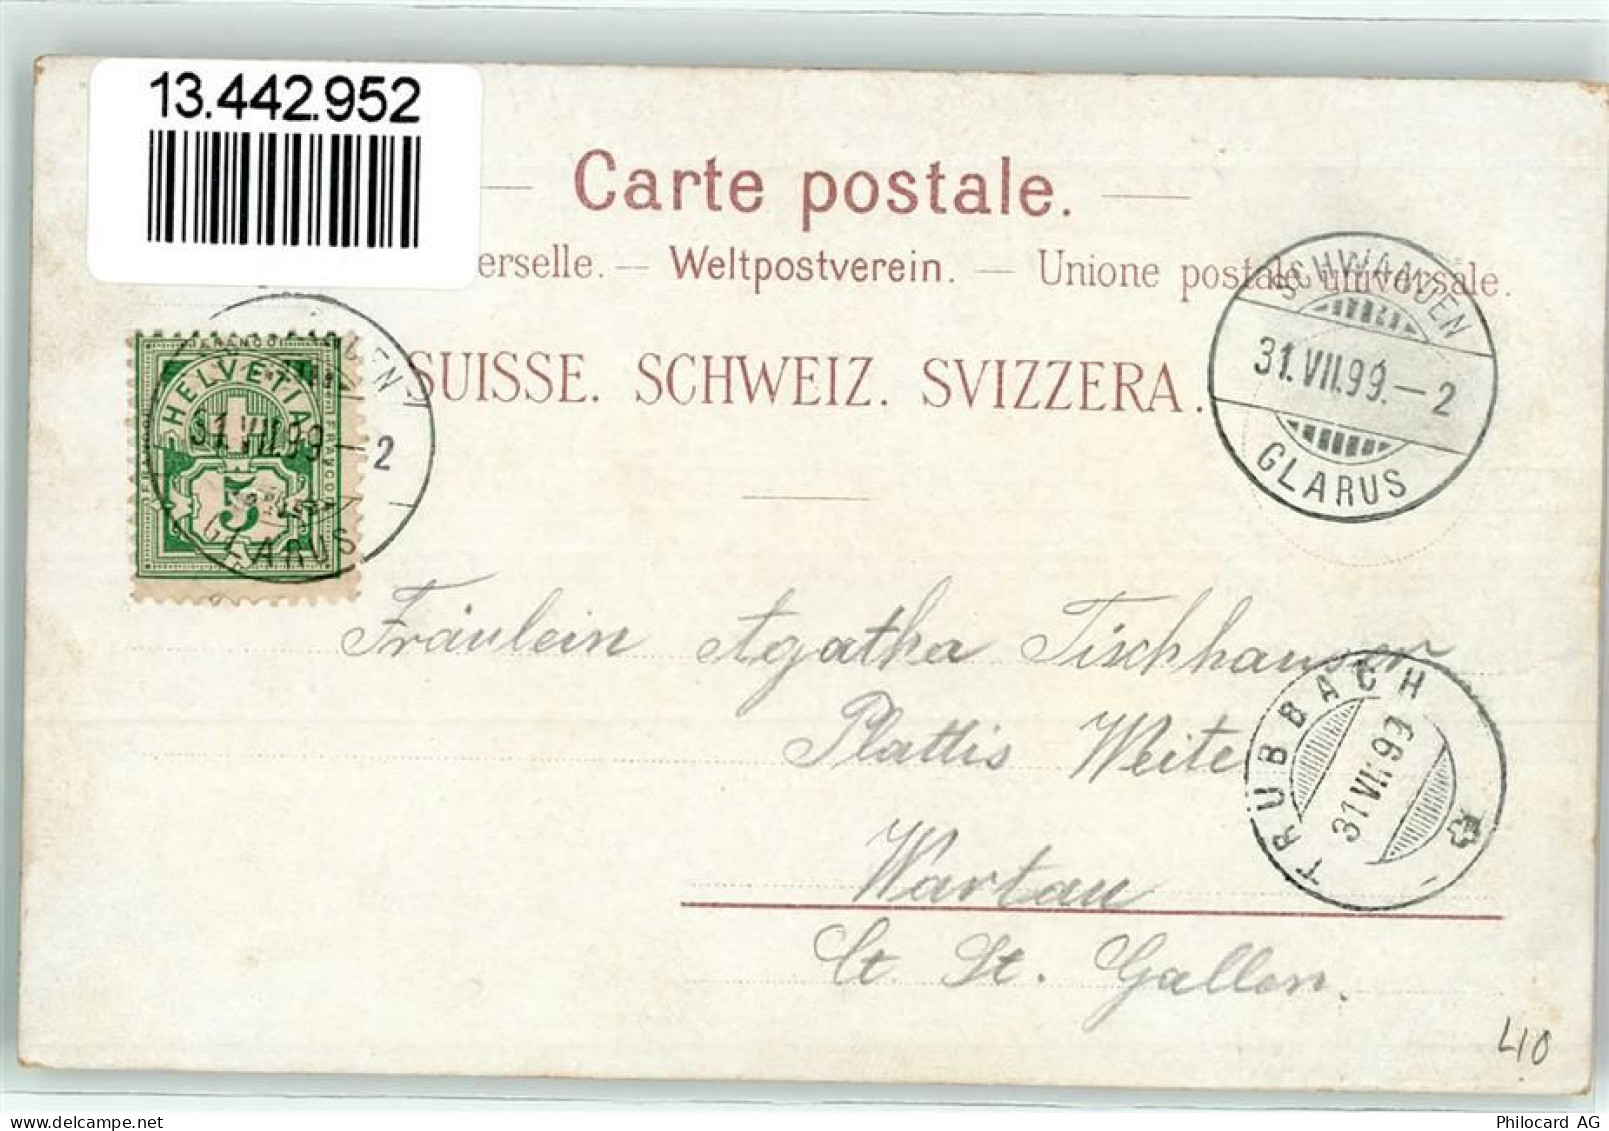 13.442.952
Carte postale.
erselle. — Weltpostverein. — Unione postale universale.
SUISSE. SCHWEIZ. SVIZZERA.
SCHWANDEN
31.VII.99.–2
GLARUS
FRANCO
HELVETIA
31.VII.99–2
5
GLARUS
Fräulein Agatha Tischhauser
Plattis Weite
Wartau
Ct. St. Gallen.
TRÜBBACH
31.VII.99
40
Philocard AG